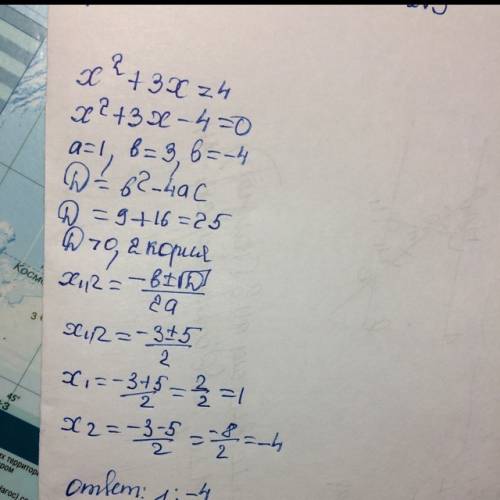 x² + 3x = 4
x² + 3x - 4 = 0
a=1, в=3, в=-4
D = в² - 4ac
D = 9 + 16 = 25
D > 0, 2 корня
x₁,₂ = -в±√D / 2a
x₁,₂ = -3±5 / 2
x₁ = -3+5 / 2 = 2/2 = 1
x₂ = -3-5 / 2 = -8/2 = -4
ответ: 1; -4
45°